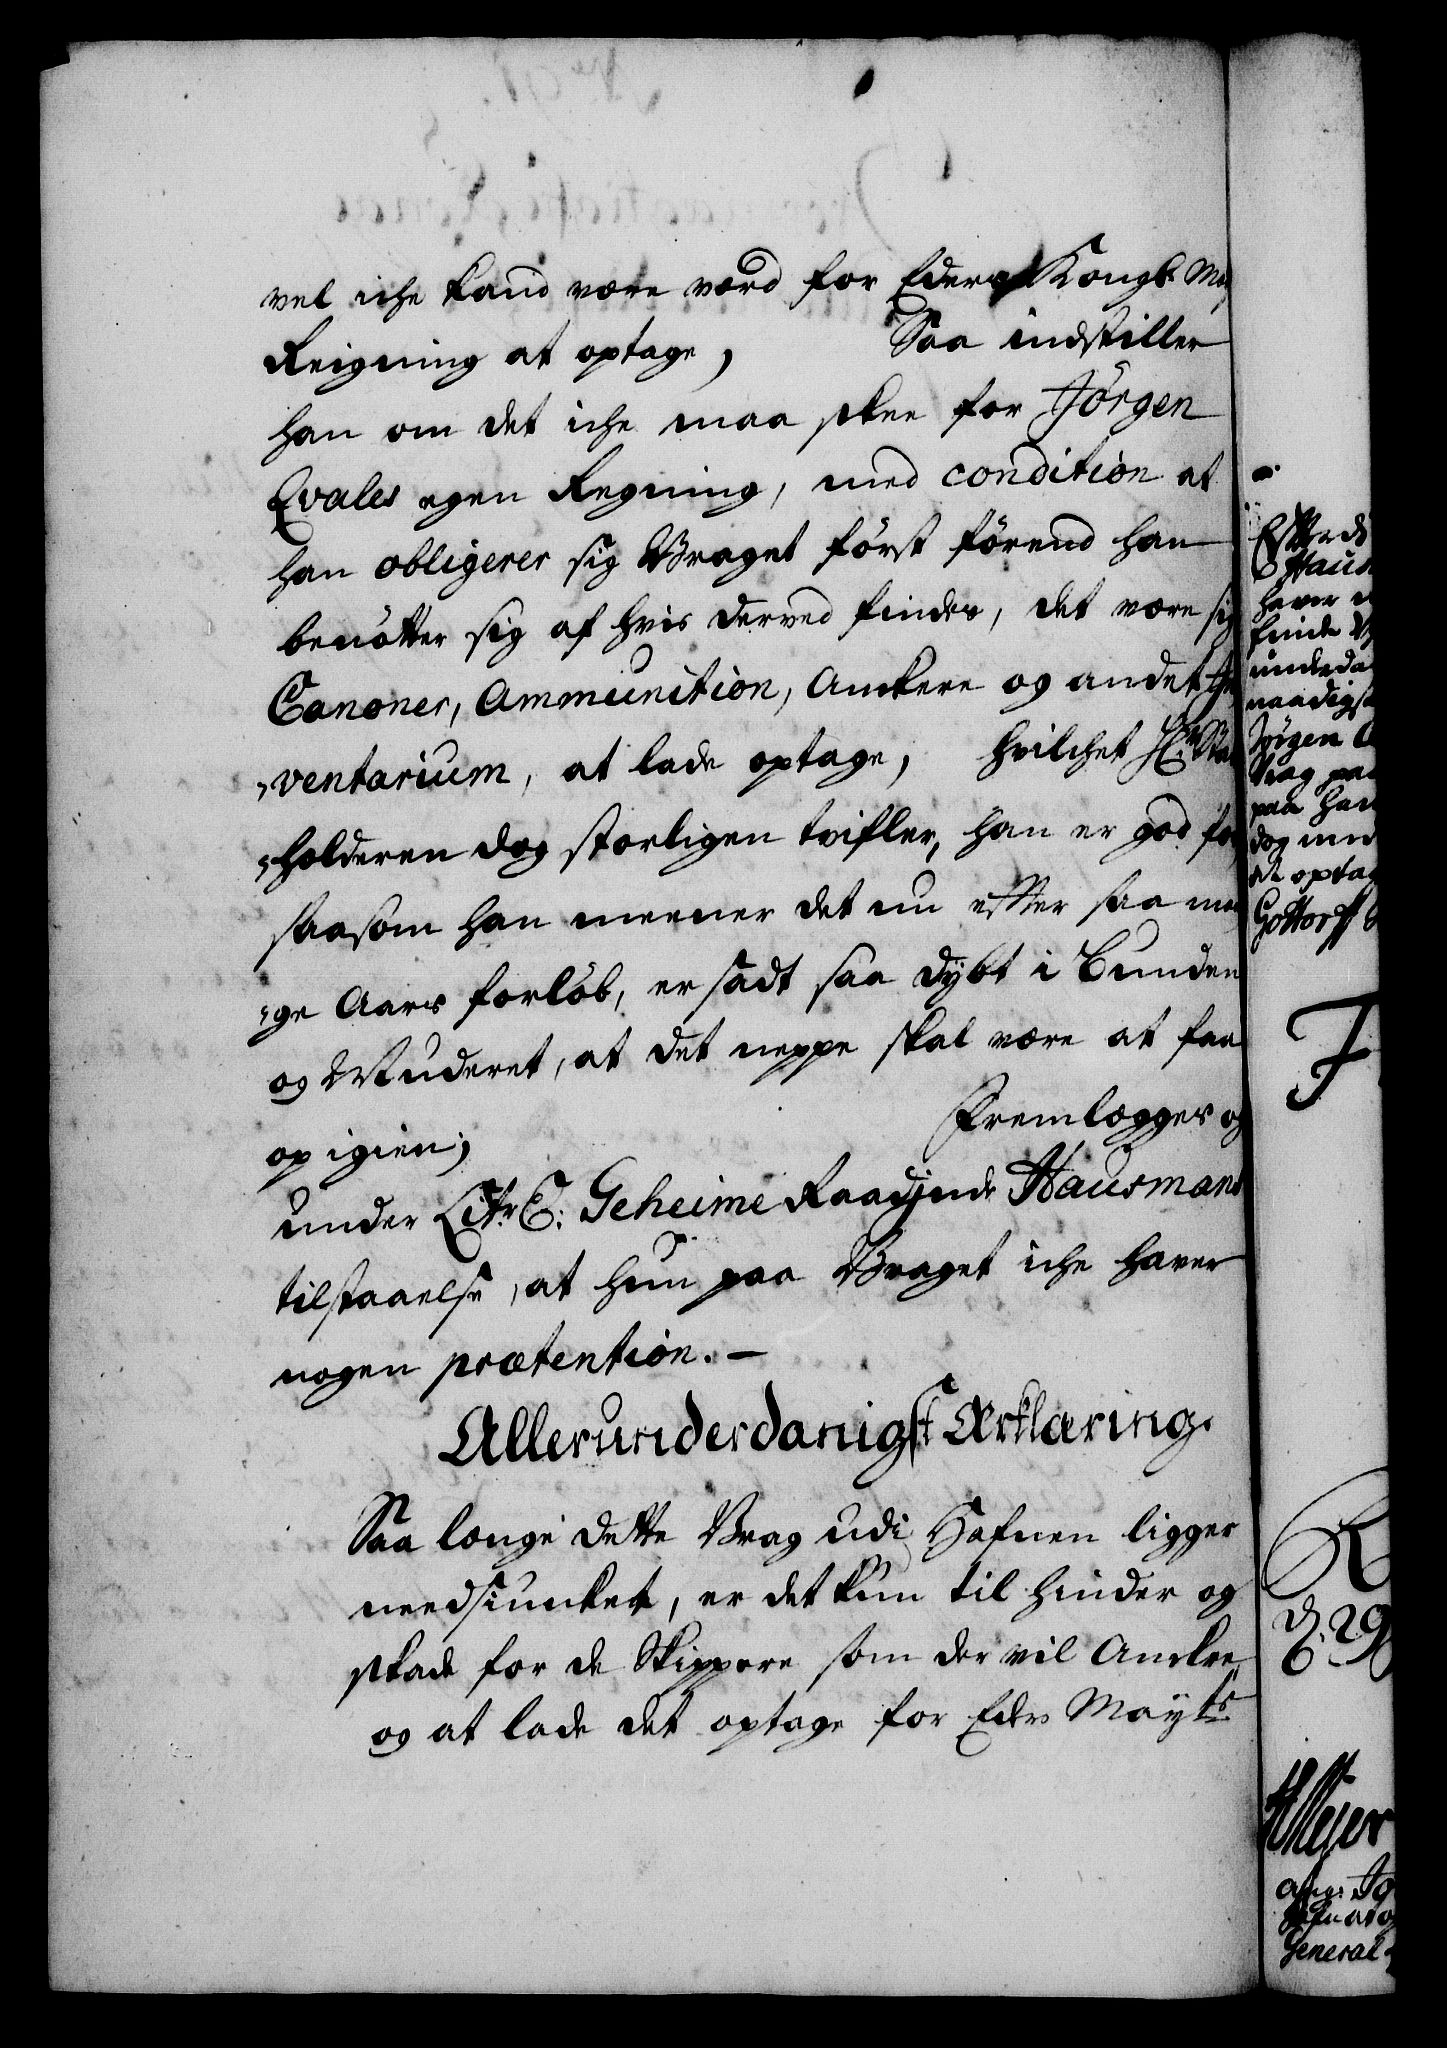 vel iche kand være værd for Eders Kongl. May
Reigning at optage, Saa indstiller
han om det iche maa skee for Jörgen
Evales egen Regning, med condition at
han obligerer sig Vraget först förend han
benötter sig af hvis derved findes, det være sig
Canoner, Ammunition, Anckere og andet In
"ventarium, at lade optage, hvilchet Hr. Stat
"holderen dog storligen tvifler, han er god for
saasom han meener det nu effter saa man
"ge Aars forlöb, er sadt saa dybt i Bunden
og Muderet, at det neppe skal være at faa
op igien; Fremlægges og
under Litr. E: Geheime Raadinde Hausmans
tilstaaelse, at hun paa Vraget iche haver
nogen prætention. –
Allerunderdanigst Erklæring.
Saa længe dette Vrag udi Hafnen ligger
needsiuncket, er det kun til hinder og
skade for de Skippere som der vil Anckre
og at lade det optage for Eders Mayts
Effterdi
Haus
haver
finde
underda
naadigst
Jörgen
Vrag paa
paa han
dog med
at optag
Gottorff
F
R
d. 29
Meyer
ang. Jö
General